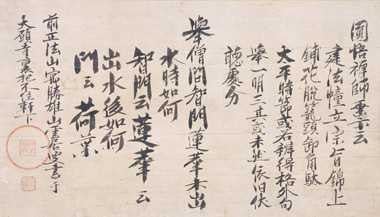 圜悟禪師垂示云
建法幢立宗旨錦上
鋪花脫籠頭卸角馱
太平時節或若辨得格外句
舉一明三其或未然依舊伏
聽處分
舉僧問智門蓮華未出
水時如何
智門云蓮華云
出水後如何
門云荷葉
前正法山 書于
軒下